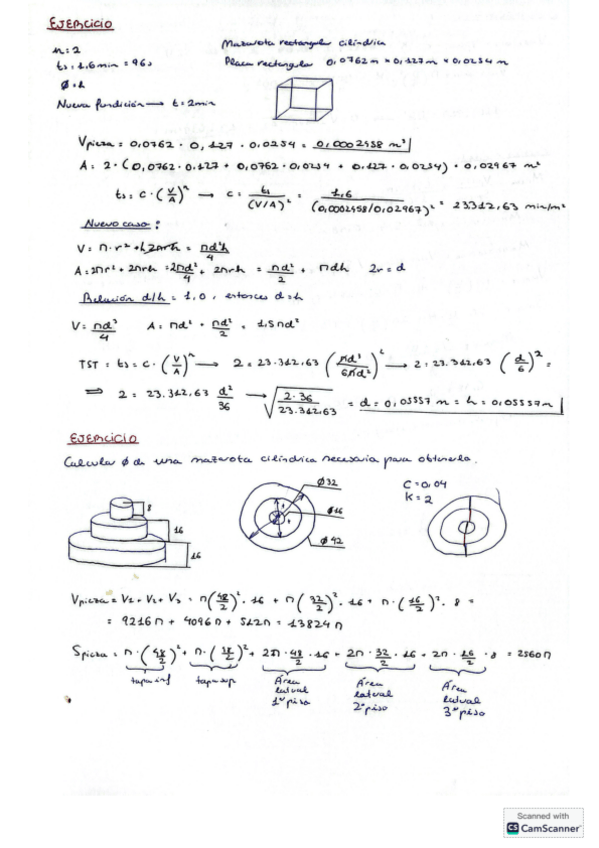 EJERCICIO
n=2
Mazarota rectangular cilíndrica
ts = 1,6 min = 96s
Placa rectangular 0,0762 m x 0,127 m x 0,0254 m
Ø=h
Nueva fundición → t=2min
Vpieza = 0,0762 · 0,127 · 0,0254 = 0,0002458 m³
A = 2·(0,0762·0,127 + 0,0762·0,0254 + 0,127·0,0254) = 0,02967 m²
ts = C·(V/A)ⁿ → C = ts/(V/A)² = 1,6/(0,0002458/0,02967)² = 23312,63 min/m²
Nuevo caso:
V = π·r²·h = πd²h/4
A = 2πr² + 2πrh = 2πd²/4 + 2πrh = πd²/2 + πdh 2r=d
Relación d/h = 1,0, entonces d=h
V = πd³/4 A = πd² + πd²/2 = 1,5πd²
TST = ts = C·(V/A)ⁿ → 2 = 23.312,63 (πd³/6πd²)² → 2 = 23.312,63 (d/6)² =
⇒ 2 = 23.312,63 d²/36 → √(2·36/23.312,63) = d = 0,05557 m = h = 0,05557m
EJERCICIO
Calcular Ø de una mazarota cilíndrica necesaria para obtenerla.
Ø32
C=0,04
8
Ø16
K=2
16
Ø42
16
Vpieza = V1+V2+V3 = π(48/2)²·16 + π(32/2)²·16 + π·(16/2)²·8 =
= 9216π + 4096π + 512π = 13824π
Spieza = π·(48/2)² + π·(48/2)² + 2π·48/2·16 + 2π·32/2·16 + 2π·16/2·8 = 2560π
tapa inf tapa sup Área lateral 1º piso Área lateral 2º piso Área lateral 3º piso
Scanned with
CS CamScanner